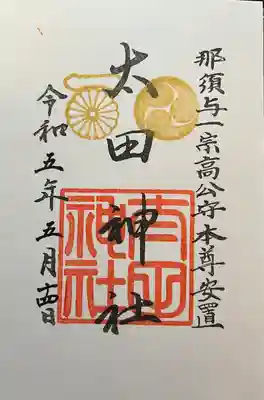 那須与一宗高公守本尊安置
太田神社
令和五年五月十四日
太田
神社